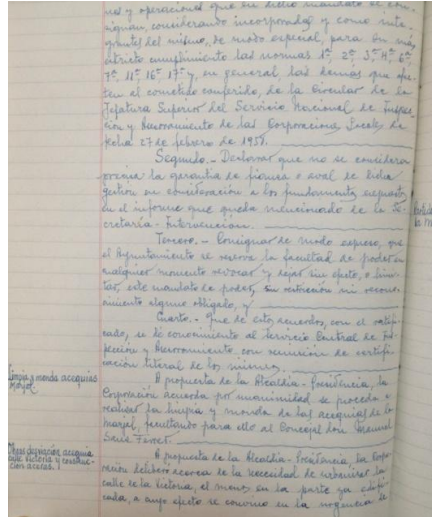 nes y operaciones que en dicho mandato se con-
signan, considerando incorporadas y como inte-
grantes del mismo, de modo especial, para su más
estricto cumplimiento las normas 1ª, 2ª, 3ª, 4ª, 6ª,
7ª, 11ª, 16ª, 17ª y, en general, las demás que afec-
ten al cometido conferido, de la Circular de la
Jefatura Superior del Servicio Nacional de Inspec-
ción y Asesoramiento de las Corporaciones Locales de
fecha 27 de febrero de 1957.
Segundo.- Declarar que no se considera
precisa la garantía de fianza o aval de dicha
gestión en consideración a los fundamentos expuestos
en el informe que queda mencionado de la Se-
cretaría-Intervención.
Tercero.- Consignar de modo expreso, que
el Ayuntamiento se reserva la facultad de poder en
cualquier momento revocar y dejar sin efecto, o limi-
tar, este mandato de poder, sin restricción ni
alguno obligado, y
Cuarto.- Que de estos acuerdos, con el
cado, se dé conocimiento al Servicio Central de Ins-
pección y Asesoramiento, con remisión de certifi-
cación literal de los mismos.
Limpia y monda acequias
Marjal.
A propuesta de la Alcaldía-Presidencia, la
Corporación acuerda por unanimidad se proceda a
realizar la limpia y monda de las acequias de la
marjal, facultando para ello al Concejal don Manuel
Sanz Ferrer.
Obras desviación acequia
calle Victoria y construc-
ción aceras.
A propuesta de la Alcaldía-Presidencia, la Corpo-
ración deliberó acerca de la necesidad de urbanizar la
calle de la Victoria, al menos en la parte ya edifi-
cada, a cuyo efecto se convino en la urgencia de